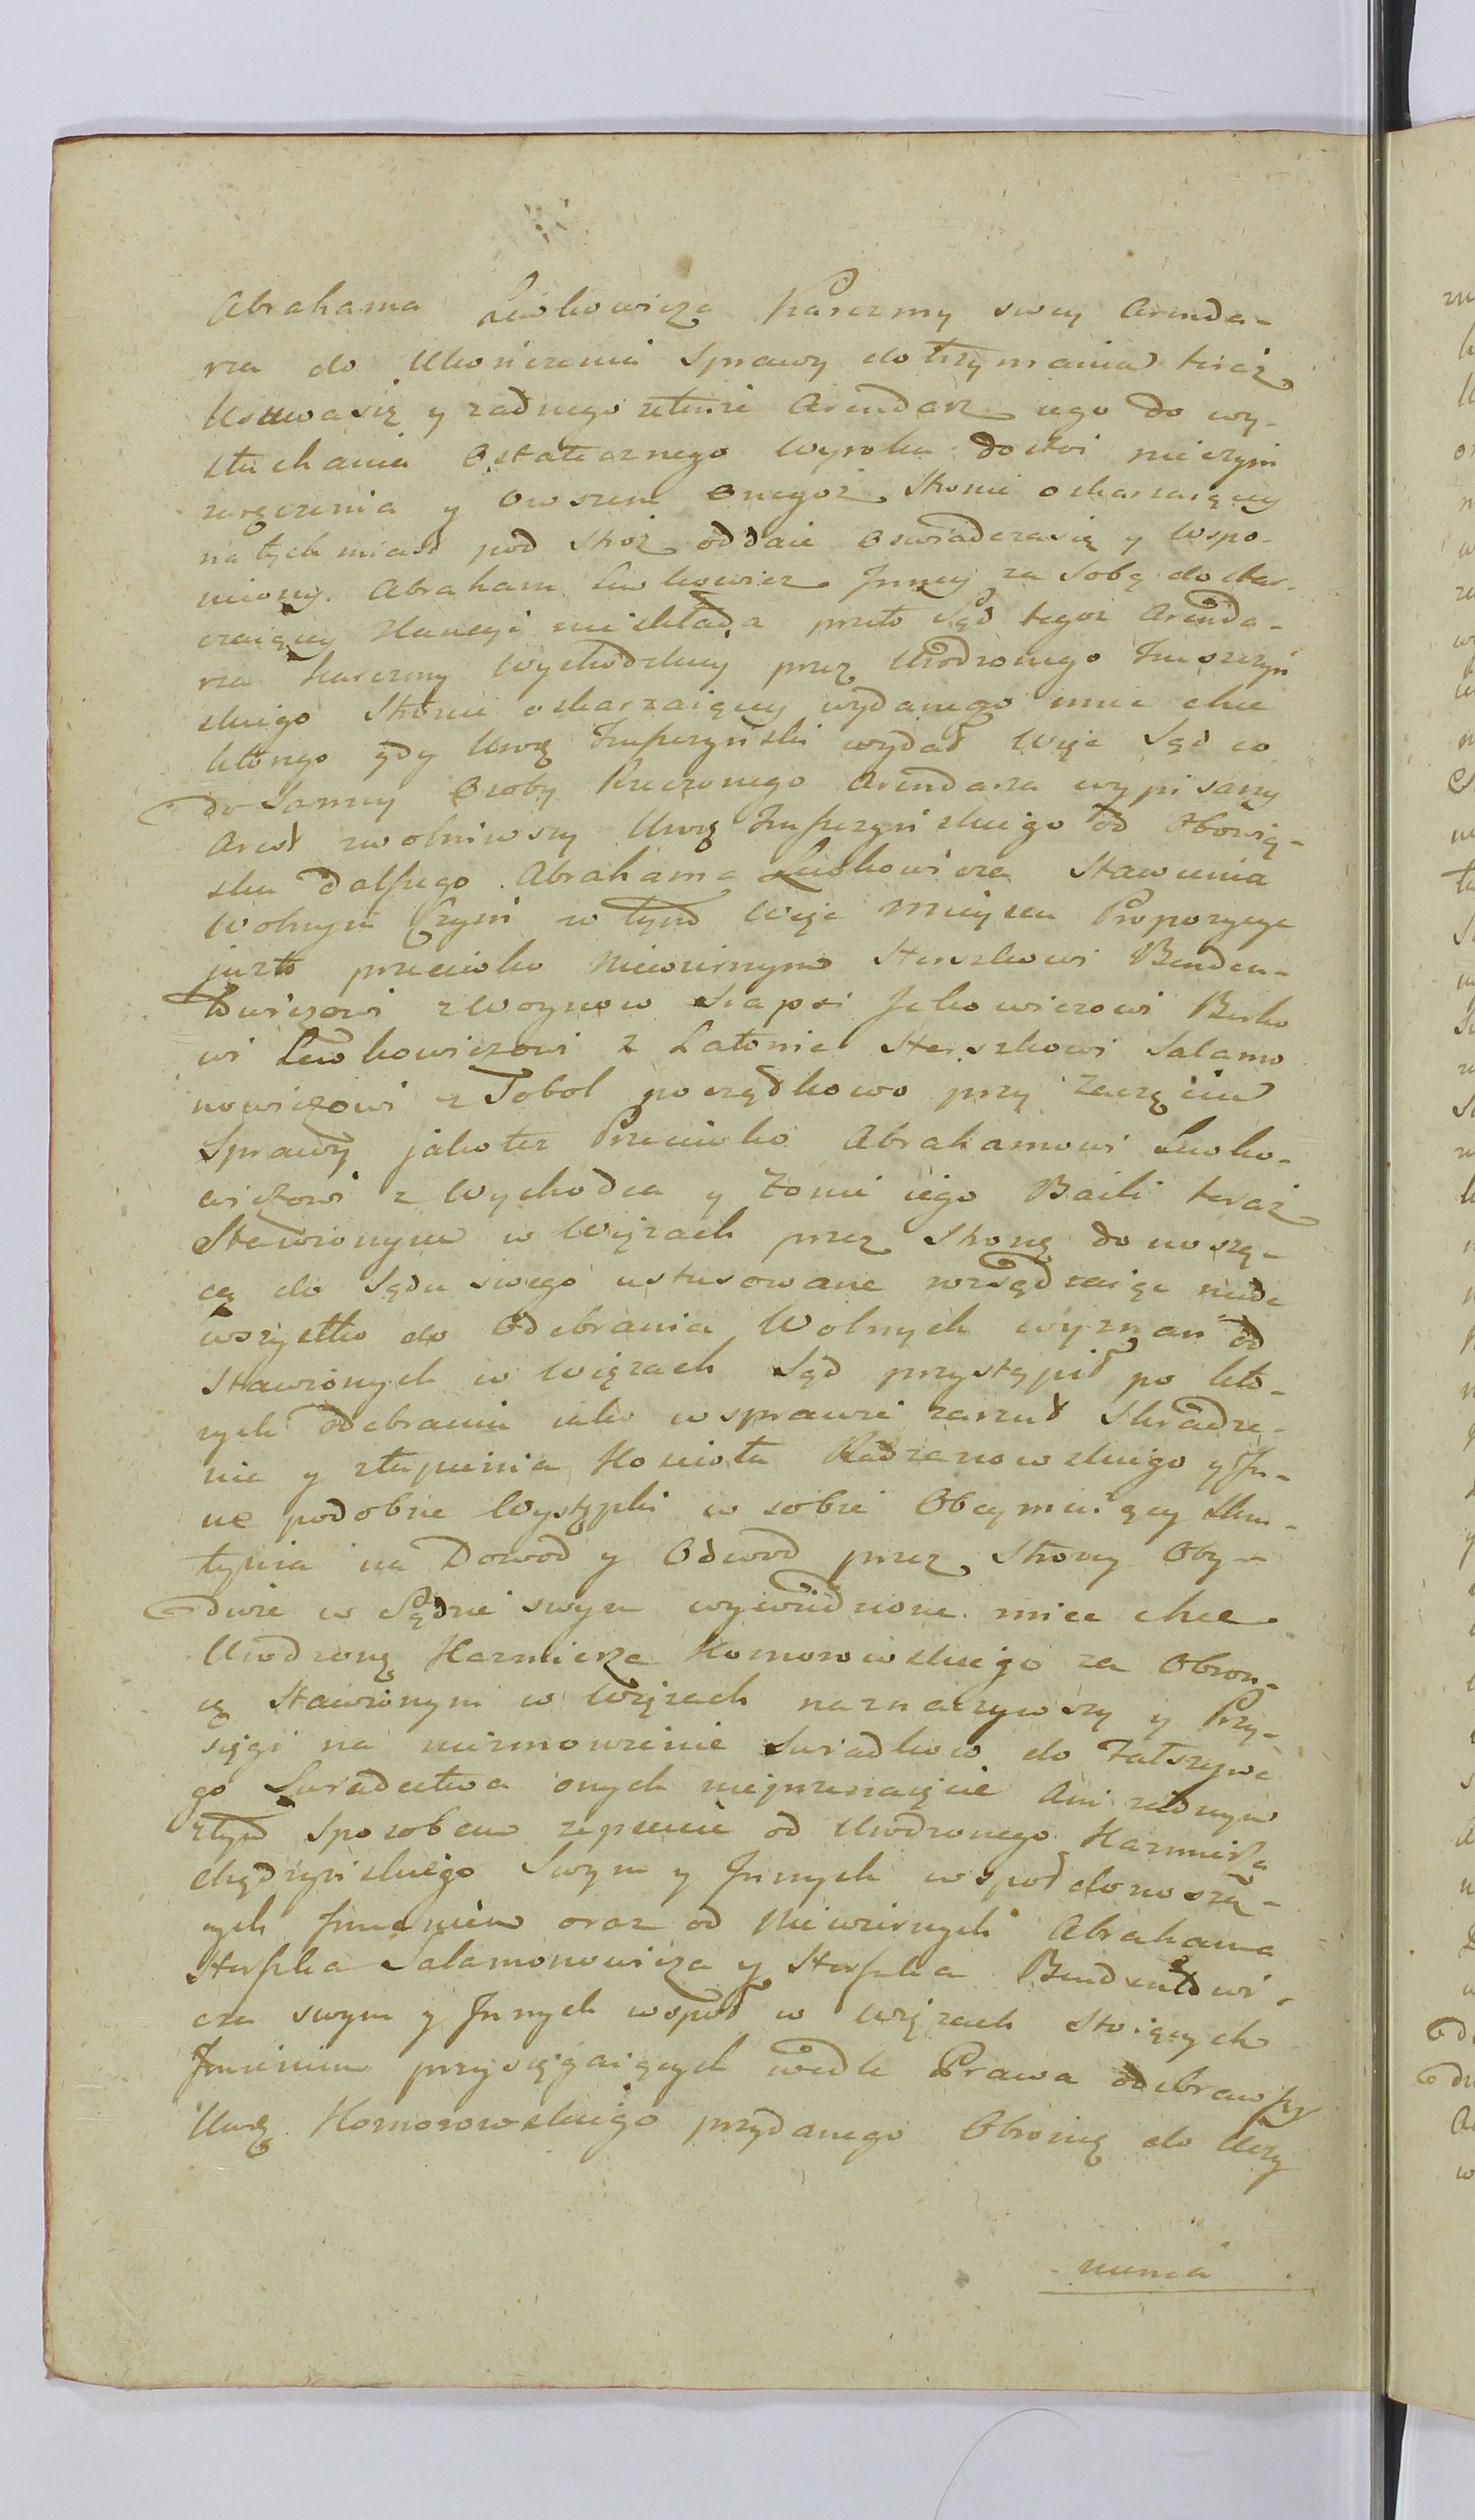 Abrahama Lewkowicza Karczmy swey Arenda-
rza do Ukończenia Sprawy dotrzymania teraz
Usuwa się y żadnego zternże Arendarz iego do wy-
słuchania Ostatecznego Wyroku dostoi nieczyni
zaręczenia y Owszem Onegoż Stronie oskarzaiącey
natychmiast pod straż oddaie oswiadcza się y Wspo-
mniony Abraham Lewkowicz Inney za Sobą dostar-
czaiącey Kaucyi nieskłada przeto Sąd tegoż Arenda-
rza Karczmy Wychodzkiey przez Urodzonego Truszczyń
skiego Stronie oskarzaiącey wydanego miec chce
ktorego gdy Urog Truszczyński wydał Więc Sąd co
do Samey Osoby Rzeczonego Arendarza wypisany
Areszt zwolniwszy Urog Truszczyńskiego od Obowią-
sku Dalszego Abrahama Lewkowicza Stawienia
Wolnym Czyni w tym Więc Mieyscu Propozycye
juzto przeciwko Niewiernym Herszkowi Benden-
towiczowi z Woynow Szapsi Jckowiczowi Berko
wi Lewkowiczowi z Łatonic Herszkowi Salamo
nowiczowi z Tobol początkowo przy Zaczęciu
Sprawy jakotez Przeciwko Abrahamowi Lewko-
wiczowi z Wychodca y Zonie iego Baili teraz
Stawionym w Więzach przez Stronę donoszą-
cą do Sądu swego ustosowane rozsądzaiąc nade
wszystko do Odebrania Wolnych wyznan od
Stawionych w Więzach Sąd przystąpił po kto-
rych odebraniu iako w sprawie zarzut Skradze-
nia y złupienia Kościoła Radzanowskiego y In-
ne podobne Występki w sobie Obeymuiącey Skru-
tynia na Dowod y Odwod przez Strony Oby-
dwie w Sądzie swym wywiedzione miec chce
Urodzong Kazmierza Komorowskiego za Obron-
cę Stawionym w Więzach naznaczywszy y Przy-
sięgi na nieznowienie Swiadkow do Fałszywe
go Swiadectwa onych nieprzenaięcie Ani żadnym
ztąd Sposobem zepsucie od Urodzonego Kazmierza
Chądzyńskiego Swym y Innych wspoł donoszą-
cych Jmieniem oraz od Niewiernych Abrahama
Herszka Salamonowicza y Herszka Bendentowi-
cza swym y Innych wspoł w Więzach Stoiących
Jmieniem przysięgaiących wedle Prawa odebrawszy
Urog Komorowskiego przydanego Obrońcę do Uczy
nienia